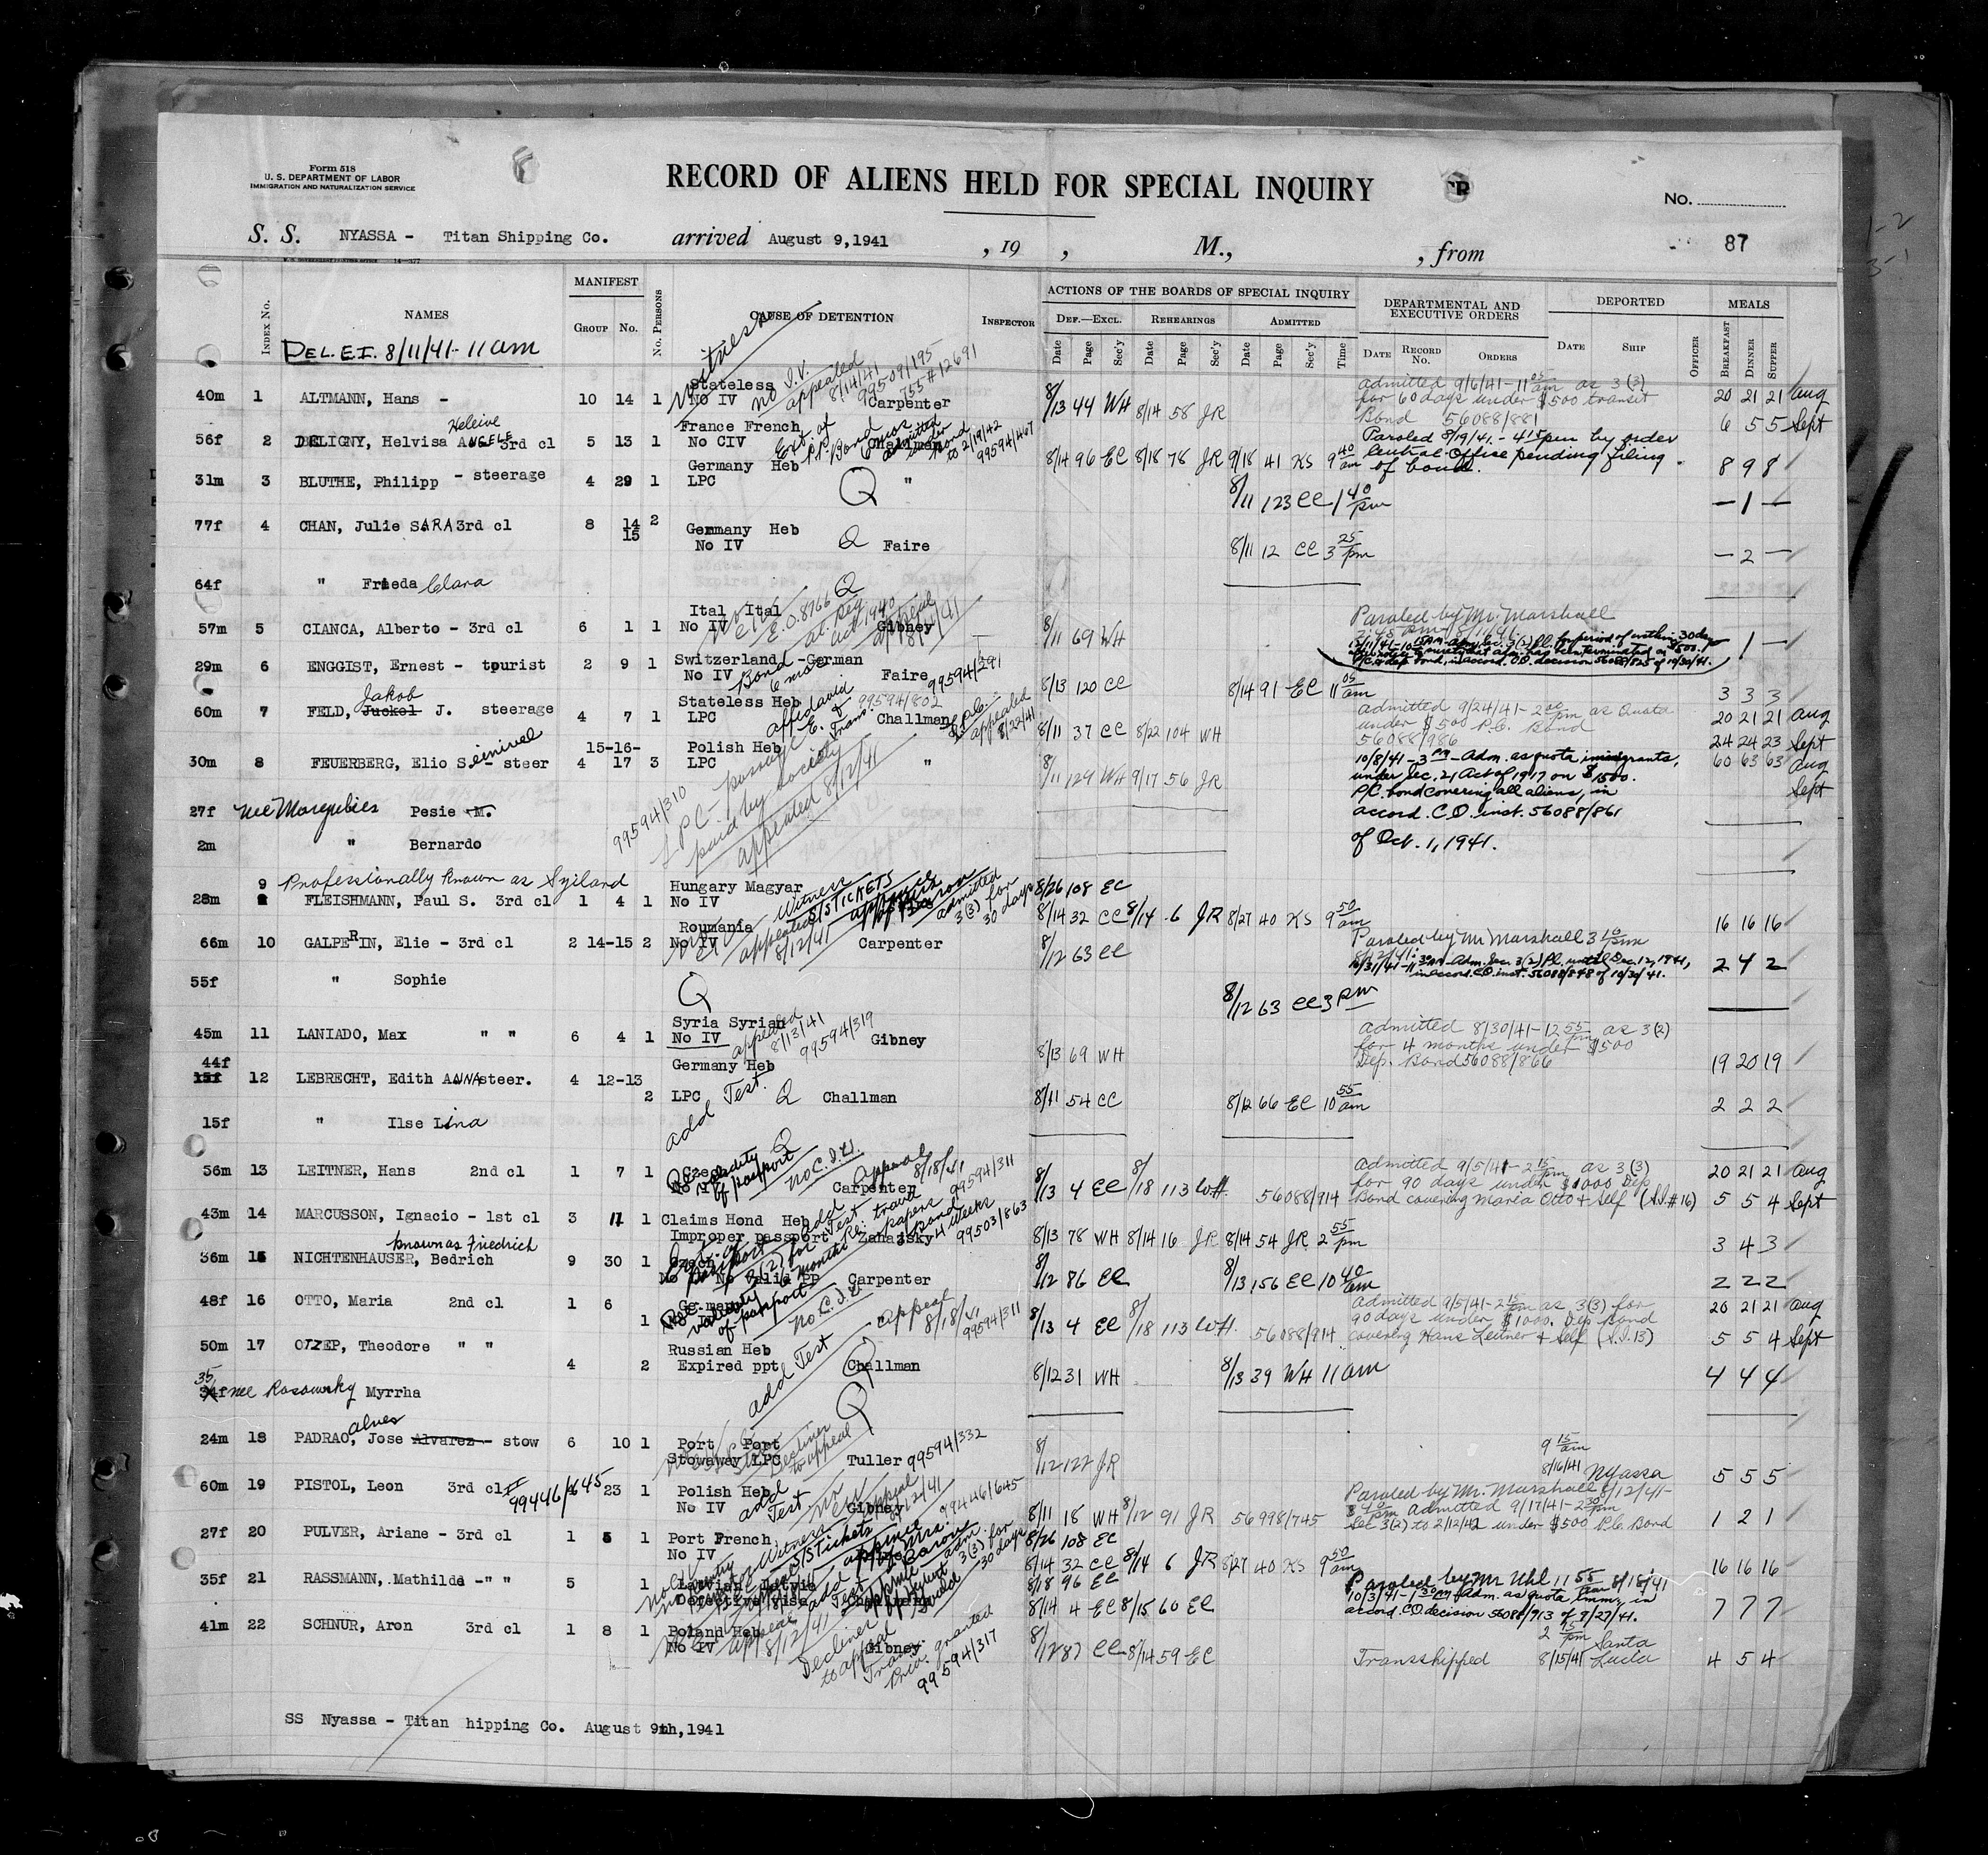 Form 518
U. S. DEPARTMENT OF LABOR
IMMIGRATION AND NATURALIZATION SERVICE
RECORD OF ALIENS HELD FOR SPECIAL INQUIRY
No.
S. S. NYASSA - Titan Shipping Co. arrived August 9,1941 , 19 , M., , from 87
INDEX No. NAMES MANIFEST GROUP No. No. PERSONS CAUSE OF DETENTION INSPECTOR
ACTIONS OF THE BOARDS OF SPECIAL INQUIRY
DEF.—EXCL. REHEARINGS ADMITTED
Date Page Sec'y Date Page Sec'y Date Page Sec'y Time
DEPARTMENTAL AND EXECUTIVE ORDERS
DATE RECORD No. ORDERS
DEPORTED
DATE SHIP OFFICER
MEALS
BREAKFAST DINNER SUPPER
DEL. E.I. 8/11/41 - 11 am
witness
40m 1 ALTMANN, Hans - 10 14 1 Stateless No IV Carpenter
appealed 8/14/41
8/13 44 WH 8/14 58 JR
admitted 9/6/41 - 11 05 am as 3 (3)
for 60 days under $500 transit
Bond 56088/881
20 21 21 Aug
6 5 5 Sept
56f 2 DELIGNY, Helvisa ANGELE 3rd cl 5 13 1 France French No CIV
Ext of P.P. Bond 6 mos
to 2/19/42 99594/467
8/14 96 EC 8/18 78 JR 9/18 41 KS 9 40 am
Paroled 8/19/41 - 4 15 pm by order
Central Office pending filing
of bond.
8 9 8
31m 3 BLUTHE, Philipp - steerage 4 29 1 Germany Heb LPC Q "
8/11 123 CC 1 40 pm
— 1 —
77f 4 CHAN, Julie SARA 3rd cl 8 14 15 2 Germany Heb No IV Q Faire
8/11 12 CC 3 25 pm
— 2 —
64f " Frieda Clara Q
57m 5 CIANCA, Alberto - 3rd cl 6 1 1 Ital Ital No IV Gibney
E.O. 8766 al. Reg act 1940
8/11 69 WH
Paroled by Mr. Marshall
1 —
29m 6 ENGGIST, Ernest - tourist 2 9 1 Switzerland -German No IV Faire
Bond 6 mos 99594/291
8/13 120 CC 8/14 91 EC 11 05 am
3 3 3
60m 7 FELD, Jakob Juckel J. steerage 4 7 1 Stateless Heb LPC Challman
99594/802
appealed 8/22/41
8/11 37 CC 8/22 104 WH
admitted 9/24/41 - 2 00 pm as Quota
under $500 P.C. Bond
56088/986
20 21 21 Aug
24 24 23 Sept
30m 8 FEUERBERG, Elio Seinivel - steer 4 15-16-17 3 Polish Heb LPC "
LPC - passage paid by society
appealed 8/12/41
99594/310
8/11 129 WH 9/17 56 JR
10/8/41 - 3 PM - Adm. as quota immigrants,
under Sec. 21 Act of 1917 on $1500.
P/C. bond covering all aliens, in
accord. C.O. inst. 56088/861
of Oct. 1, 1941.
60 63 63 Aug
Sept
27f nee Margulies Pesie M.
2m " Bernardo
Professionally known as Syiland
28m 9 FLEISHMANN, Paul S. 3rd cl 1 4 1 Hungary Magyar No IV
Witness S/S TICKETS
admitted 3(3) for 30 days
8/26 108 EC
8/14 32 CC 8/14 6 JR 8/27 40 KS 9 50 am
16 16 16
66m 10 GALPERIN, Elie - 3rd cl 2 14-15 2 Roumania No IV Carpenter
appealed 8/12/41
8/12 63 CC
Paroled by Mr Marshall 3 10 pm
8/12/41.
10/31/41 - 11 30 AM - Adm. Sec. 3(2) P.l. until Dec. 12, 1941,
in accord. C.O. inst. 56088/848 of 10/30/41.
2 4 2
55f " Sophie Q
8/12 63 CC 3 pm
45m 11 LANIADO, Max " " 6 4 1 Syria Syrian No IV Gibney
appealed 8/13/41 99594/319
8/13 69 WH
admitted 8/30/41 - 12 55 pm as 3(2)
for 4 months under $500
Dep. Bond 56088/866
19 20 19
44f 15f 12 LEBRECHT, Edith ANNA steer. 4 12-13 2 Germany Heb LPC Q Challman
add Test.
8/11 54 CC 8/12 66 EC 10 55 am
2 2 2
15f " Ilse Lina Q
56m 13 LEITNER, Hans 2nd cl 1 7 1 Czech No IV Carpenter
Re: validity of passport
no C.I.V.
Appeal 8/18/41 99594/311
8/13 4 EC 8/18 113 WH. 56088/914
Admitted 9/5/41 - 2 15 pm as 3(3)
for 90 days under $1000 Dep
Bond covering Maria Otto + Self (S.I. #16)
20 21 21 Aug
5 5 4 Sept
43m 14 MARCUSSON, Ignacio - 1st cl 3 11 1 Claims Hond Heb Improper passport Zanassky
99503/863
8/13 78 WH 8/14 16 JR 8/14 54 JR 2 55 pm
3 4 3
known as Friedrich
36m 15 NICHTENHAUSER, Bedrich 9 30 1 Czech No IV No valid PP Carpenter
8/12 86 EC 8/13 156 EC 10 40 am
2 2 2
48f 16 OTTO, Maria 2nd cl 1 6 1 Germany No IV
Re: validity of passport
no C.I.V.
appeal 8/18/41 99594/311
8/13 4 EC 8/18 113 WH. 56088/914
Admitted 9/5/41 - 2 15 pm as 3(3) for
90 days under $1000. Dep Bond
covering Hans Leitner + Self (S.I. 13)
20 21 21 Aug
5 5 4 Sept
50m 17 OZEP, Theodore " " 4 2 Russian Heb Expired ppt Challman
add Test Q
8/12 31 WH 8/13 39 WH 11 am
4 4 4
35 34f nee Rosowsky Myrrha Q
24m 18 PADRAO, Jose Alves Alvarez - stow 6 10 1 Port Port Stowaway LPC Tuller
Declines to appeal 99594/332
8/12 122 JR
9 15 am
8/16/41 Nyassa
5 5 5
60m 19 PISTOL, Leon 3rd cl 23 1 Polish Heb No IV Gibney
99446/645
add Test
appeal 8/12/41 99446/645
8/11 18 WH 8/12 91 JR 56998/745
Paroled by Mr. Marshall 8/12/41 -
3 10 pm Admitted 9/17/41 - 2 30 pm
Sec 3(2) to 2/12/42 under $500 P.C. Bond
1 2 1
27f 20 PULVER, Ariane - 3rd cl 1 5 1 Port French No IV
Witness S/S Tickets
3(3) for 30 days
8/26 108 EC
8/14 32 CC 8/14 6 JR 8/27 40 KS 9 50 am
16 16 16
35f 21 RASSMANN, Mathilde - " " 5 1 Latvian Latvia Defective visa Challman
8/18 96 EC
8/14 4 EC 8/15 60 EC
Paroled by Mr Uhl 11 55 am 8/18/41
10/3/41 - 1 30 PM - Adm. as quota Imm., in
accord. C.O. decision 56088/913 of 9/27/41.
7 7 7
41m 22 SCHNUR, Aron 3rd cl 1 8 1 Poland Heb No IV Gibney
Appealed 8/12/41
Declines to appeal
Trans. Priv. granted 99594/317
8/12 87 CC 8/14 59 EC
Transshipped 2 15 pm 8/15/41 Santa Lucia
4 5 4
SS Nyassa - Titan hipping Co. August 9th,1941